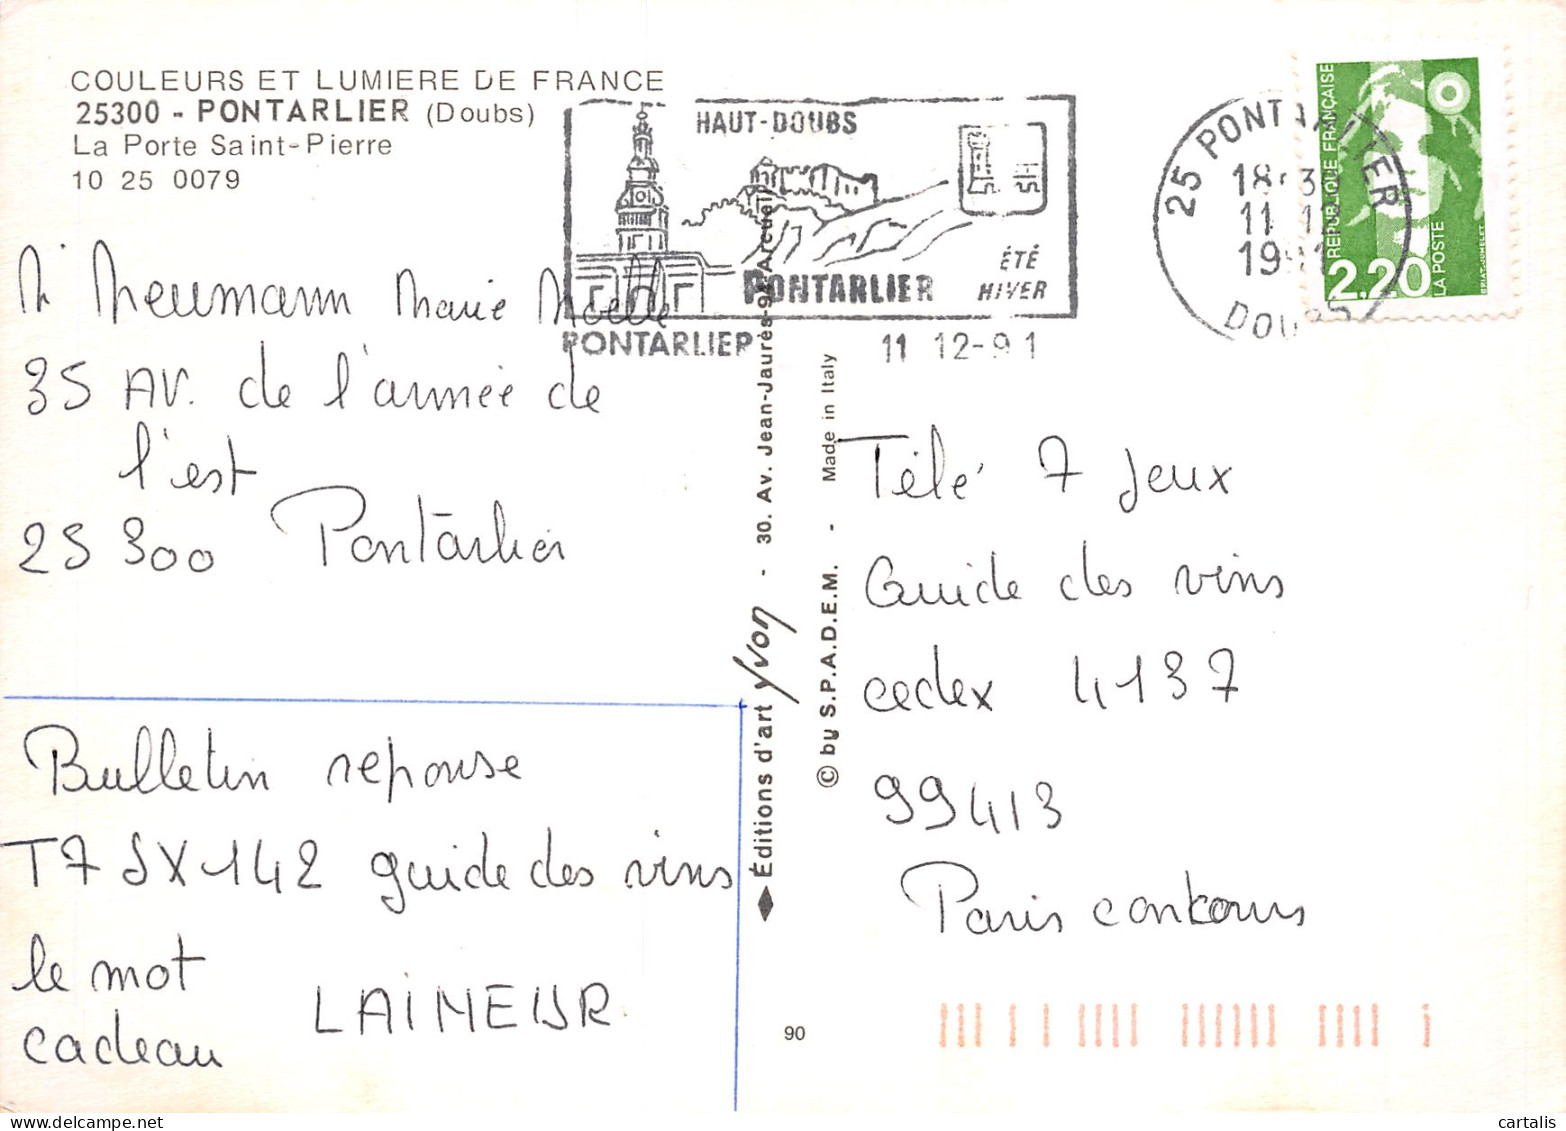 COULEURS ET LUMIERE DE FRANCE
25300 - PONTARLIER (Doubs)
La Porte Saint-Pierre
10 25 0079
HAUT-DOUBS
PONTARLIER
ÉTÉ
HIVER
PONTARLIER 11 12-91
25 PONTARLIER
11 12
1991
DOUBS
REPUBLIQUE FRANÇAISE
2,20
LA POSTE
BRIAT-JUMELET
Neumann Marie Noelle
35 AV. de l'armée de
l'est
25 300 Pontarlier
Bulletin reponse
T7 JX 142 guide des vins
le mot
cadeau
Éditions d'art Yvon - 30. Av. Jean-Jaurès-94-Arcueil
© by S.P.A.D.E.M. - Made in Italy
Télé 7 Jeux
Guide des vins
cedex 4137
99413
Paris conkours
90
cartalis